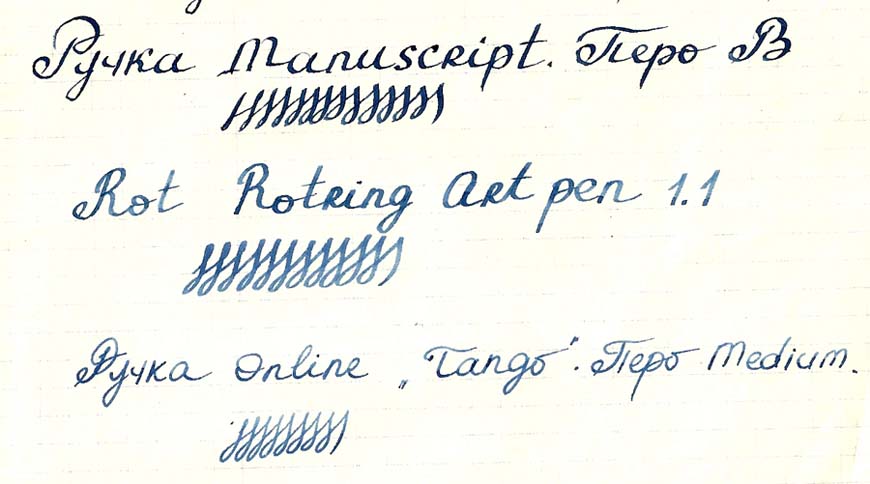 Ручка Manuscript. Перо B
Rot Rotring Art pen 1.1
Ручка Online „Tango". Перо Medium.